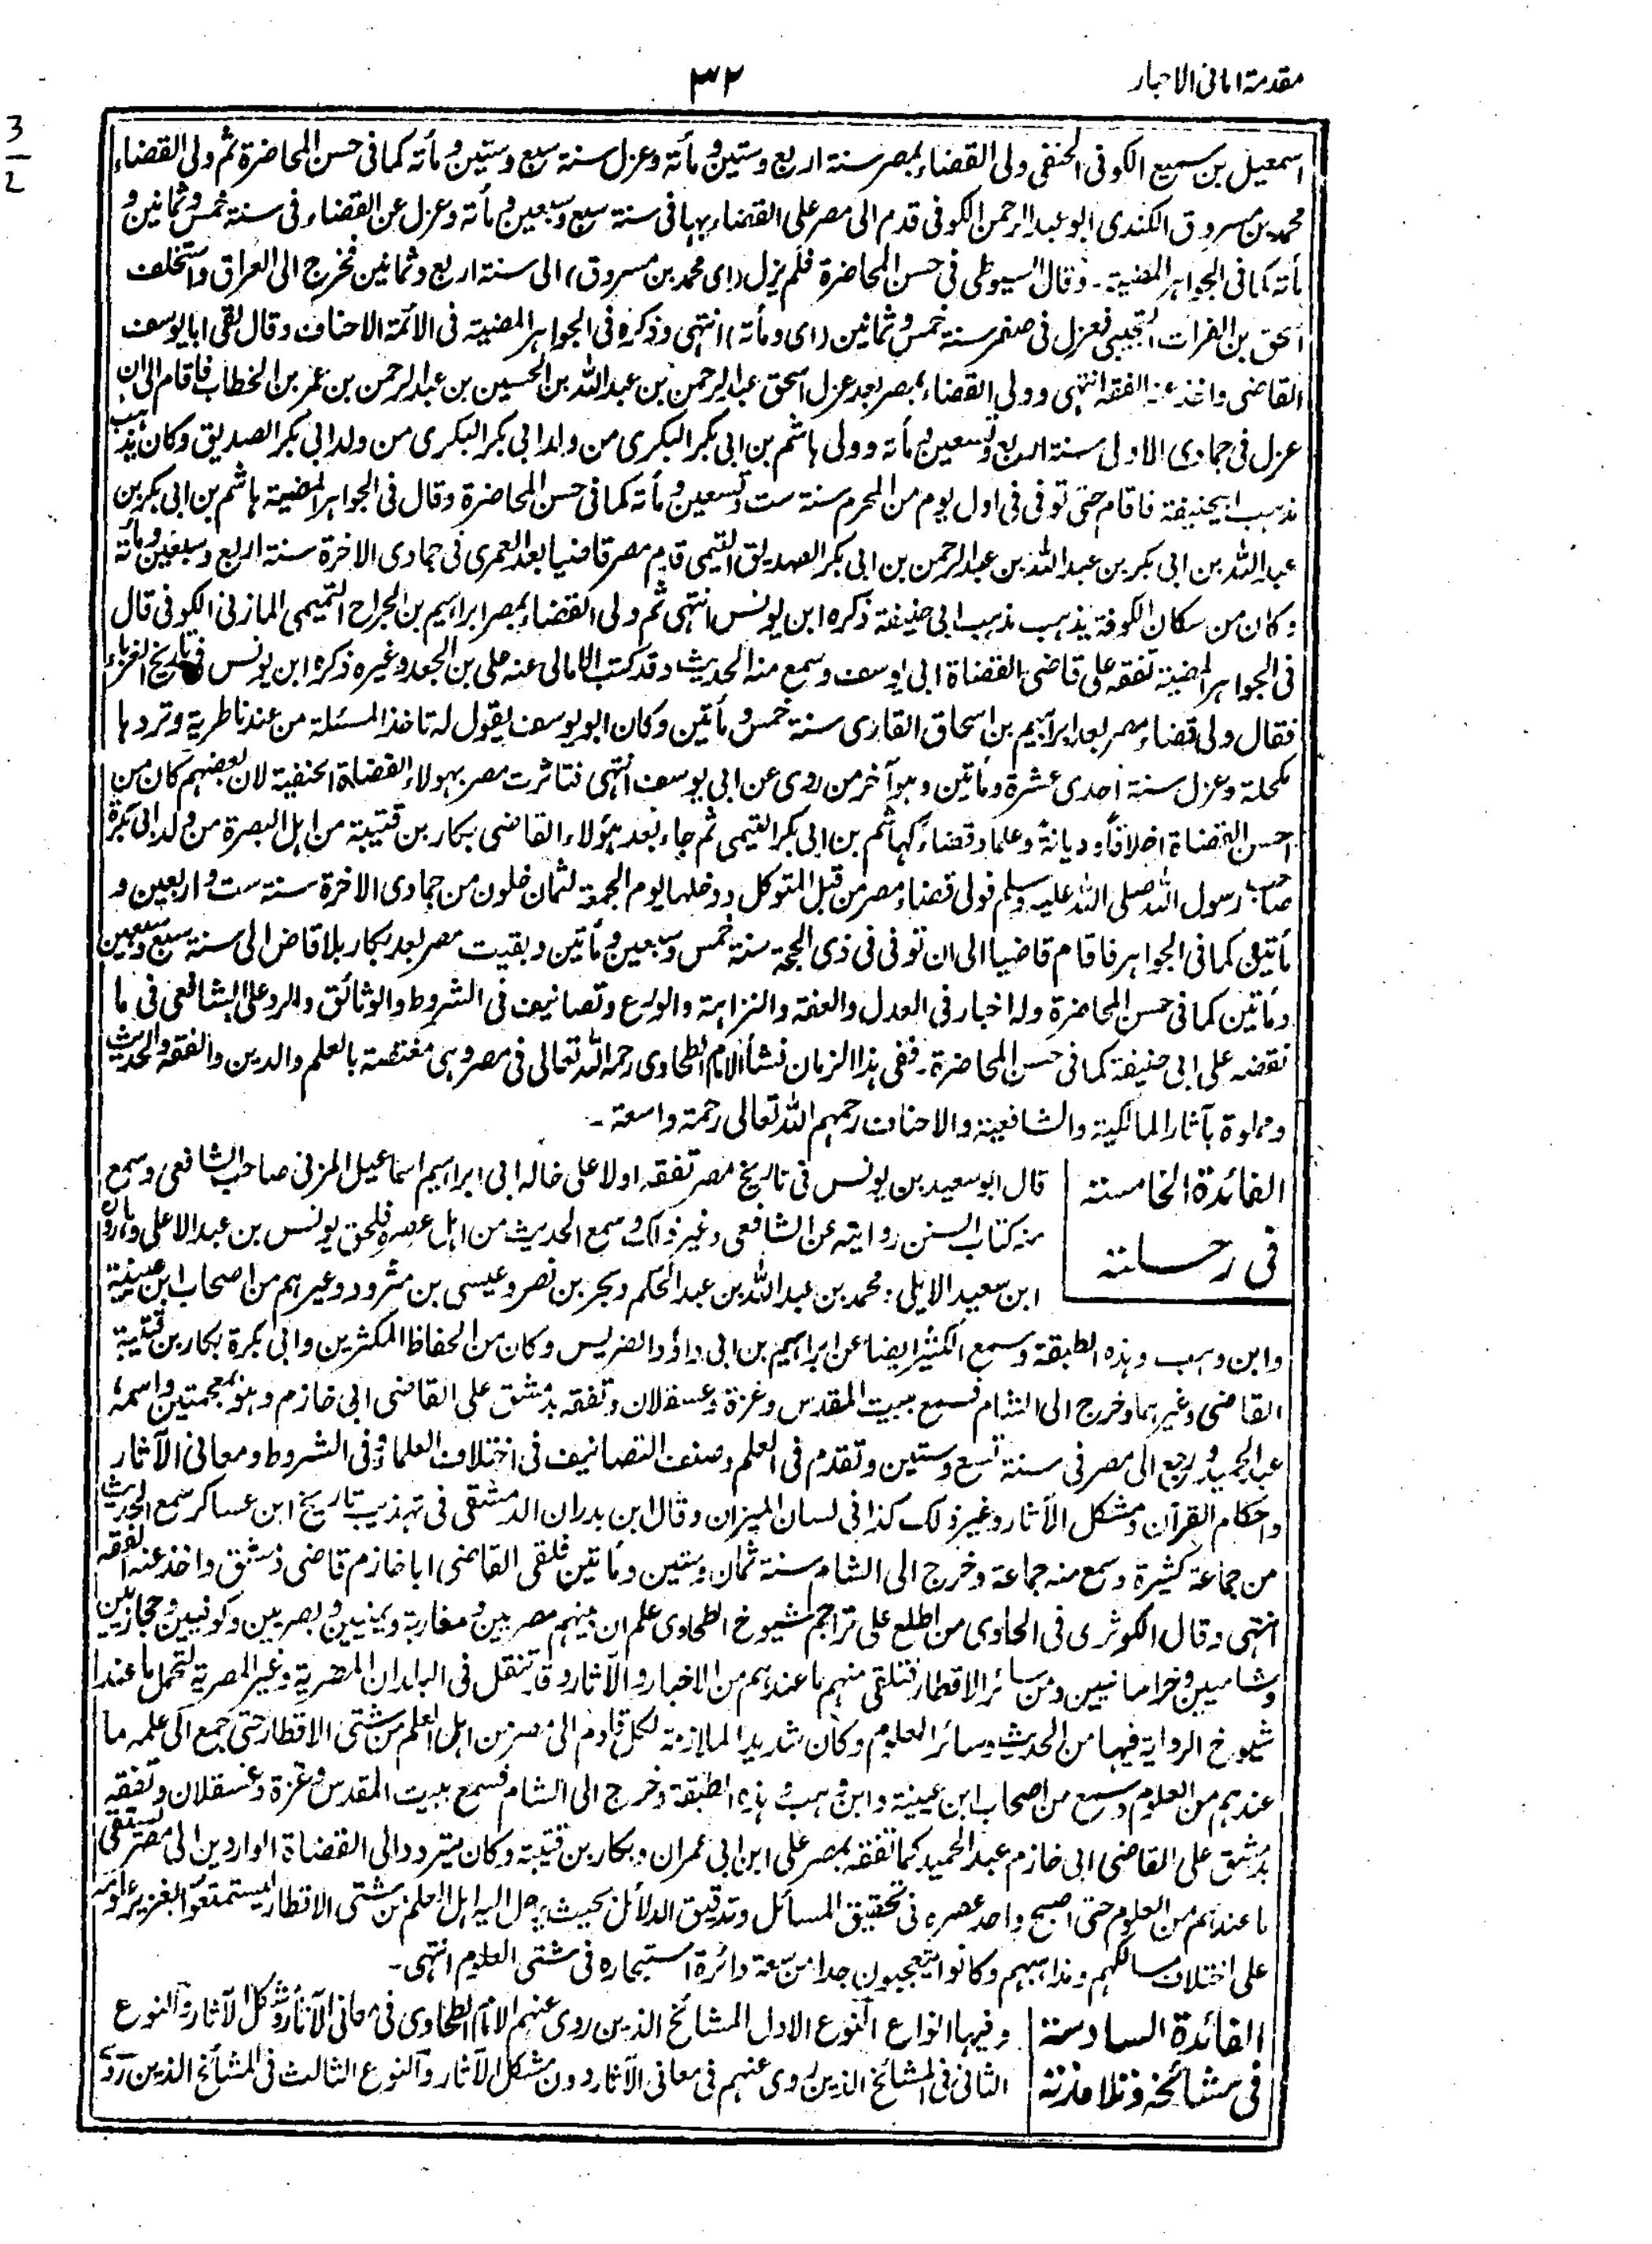 مقدمة امانی الاحبار
٣٢
3
2
اسمعیل بن سمیع الکوفی الحنفی ولی القضاء بمصر سنة اربع وستین و مأته وعزل سنة سبع وستین و مأته کما فی حسن المحاضرة ثم ولی القضاء
محمد بن مسروق الکندی ابو عبد الرحمن الکوفی قدم الی مصر علی القضاء بها فی سنة سبع وسبعین و مأته وعزل عن القضاء فی سنة خمس وثمانین و
مأته کما فی الجواهر المضیة ۔ وقال السیوطی فی حسن المحاضرة فلم یزل (ای محمد بن مسروق) الی سنة اربع وثمانین فخرج الی العراق واستخلف
اسحق بن الفرات التجیبی فعزل فی صفر سنة خمس وثمانین (ای ومأته) انتهی وذکره فی الجواهر المضیة فی الائمة الاحناف وقال لقی ابا یوسف
القاضی واخذ عنه الفقه انتهی وولی القضاء بمصر بعد عزل اسحق عبد الرحمن بن عبد الله بن الحسین بن عبد الرحمن بن عمر بن الخطاب فاقام الی ان
عزل فی جمادی الاولی سنة اربع وتسعین و مأته وولی هاشم بن ابی بکر البکری من ولد ابی بکر البکری من ولد ابی بکر الصدیق وکان یذهب
مذهب ابیحنیفة فاقام حتی توفی فی اول یوم من المحرم سنة ست وتسعین و مأته کما فی حسن المحاضرة وقال فی الجواهر المضیة هاشم بن ابی بکر بن
عبد الله بن ابی بکر بن عبد الله بن عبد الرحمن بن ابی بکر الصدیق التیمی قدم مصر قاضیا بعد العمری فی جمادی الاخرة سنة اربع وسبعین ومأته
وکان من سکان الکوفة یذهب مذهب ابی حنیفة ذکره ابن یونس انتهی ثم ولی القضاء بمصر ابراهیم بن الجراح التمیمی المازنی الکوفی قال
فی الجواهر المضیة تفقه علی قاضی القضاة ابی یوسف وسمع منه الحدیث وقد کتب الامالی عنه علی بن الجعد وغیره ذکره ابن یونس فی تاریخ الغرباء
فقال ولی قضاء مصر بعد ابراهیم بن اسحاق القاری سنة خمس و مأتین وکان ابو یوسف یقول له تاخذ المسئلة من عندنا طریة وتردها
مکحلة وعزل سنة احدی عشرة ومأتین وهو آخر من روی عن ابی یوسف انتهی فتاثرت مصر بهولاء القضاة الحنفیة لان بعضهم کان من
احسن القضاة اخلاقا و دیانة وعلما وقضاء کهاشم بن ابی بکر التیمی ثم جاء بعد هؤلاء القاضی بکار بن قتیبة من اهل البصرة من ولد ابی بکرة
صاحب رسول الله صلی الله علیه وسلم فولی قضاء مصر من قبل المتوکل ودخلها یوم الجمعة لثمان خلون من جمادی الاخرة سنة ست واربعین و
مأتین کما فی الجواهر فاقام قاضیا الی ان توفی فی ذی الحجة سنة خمس وسبعین و مأتین وبقیت مصر بعد بکار بلا قاض الی سنة سبع وسبعین
ومأتین کما فی حسن المحاضرة وله اخبار فی العدل والعفة والنزاهة والورع وتصانیف فی الشروط والوثائق والرد علی الشافعی فی ما
نقضه علی ابی حنیفة کما فی حسن المحاضرة ۔ ففی هذا الزمان نشأ الامام الطحاوی رحمه الله تعالی فی مصر وهی مغتصة بالعلم والدین والفقه والحدیث
ومملوة بآثار المالکیة والشافعیة والاحناف رحمهم الله تعالی رحمة واسعة ۔
الفائدة الخامسة
فی رحلته
قال ابو سعید بن یونس فی تاریخ مصر تفقه اولا علی خاله ابی ابراهیم اسماعیل المزنی صاحب الشافعی وسمع
منه کتاب السنن روایته عن الشافعی وغیر ذلک وسمع الحدیث من اهل عصره فلحق یونس بن عبد الاعلی وهارون
ابن سعید الایلی ومحمد بن عبد الله بن عبد الحکم وبحر بن نصر وعیسی بن مثرود وغیرهم من اصحاب ابن عیینة
وابن وهب وهذه الطبقة وسمع الکثیر ایضا عن ابراهیم بن ابی داؤد الضریس وکان من الحفاظ المکثرین وابی بکرة بکار بن قتیبة
القاضی وغیرهما وخرج الی الشام فسمع ببیت المقدس وغزة وعسقلان وتفقه بدمشق علی القاضی ابی خازم وهو بمعجمتین واسمه
عبد الحمید ورجع الی مصر فی سنة تسع وستین وتقدم فی العلم وصنف التصانیف فی اختلاف العلماء وفی الشروط ومعانی الآثار
واحکام القرآن ومشکل الآثار وغیر ذلک کذا فی لسان المیزان وقال ابن بدران الدمشقی فی تهذیب تاریخ ابن عساکر سمع الحدیث
من جماعة کثیرة وسمع منه جماعة وخرج الی الشام سنة ثمان وستین ومأتین فلقی القاضی ابا خازم قاضی دمشق واخذ عنه الفقه
انتهی وقال الکوثری فی الحاوی من اطلع علی تراجم شیوخ الطحاوی علم ان بینهم مصریین و مغاربة ویمنیین وبصریین وکوفیین وحجازیین
وشامیین وخراسانیین ومن سائر الاقطار فتلقی منهم ما عندهم من الاخبار والآثار وقد تنقل فی البلدان المصریة وغیر المصریة لتحمل ما عند
شیوخ الروایة فیها من الحدیث وسائر العلوم وکان شدید الملازمة لکل قادم الی مصر من اهل العلم من شتی الاقطار حتی جمع الی علمه ما
عندهم من العلوم وسمع من اصحاب ابن عیینة وابن وهب و هذه الطبقة وخرج الی الشام فسمع ببیت المقدس وغزة وعسقلان وتفقه
بدمشق علی القاضی ابی خازم عبد الحمید کما تفقه بمصر علی ابن ابی عمران وبکار بن قتیبة وکان یتردد الی القضاة الواردین الی مصر یستقی
ما عندهم من العلوم حتی اصبح واحد عصره فی تحقیق المسائل وتدقیق الدلائل بحیث یرحل الیه اهل العلم من شتی الاقطار لیستمتعوا بغزیر علومه
علی اختلاف مسالکهم ومذاهبهم وکانوا یتعجبون جدا من سعة دائرة استبحاره فی شتی العلوم انتهی ۔
الفائدة السادسة
فی مشائخه وتلامذته
وفیها انواع النوع الاول المشائخ الذین روی عنهم الامام الطحاوی فی معانی الآثار ومشکل الآثار والنوع
الثانی فی المشائخ الذین روی عنهم فی معانی الآثار دون مشکل الآثار والنوع الثالث فی المشائخ الذین روی